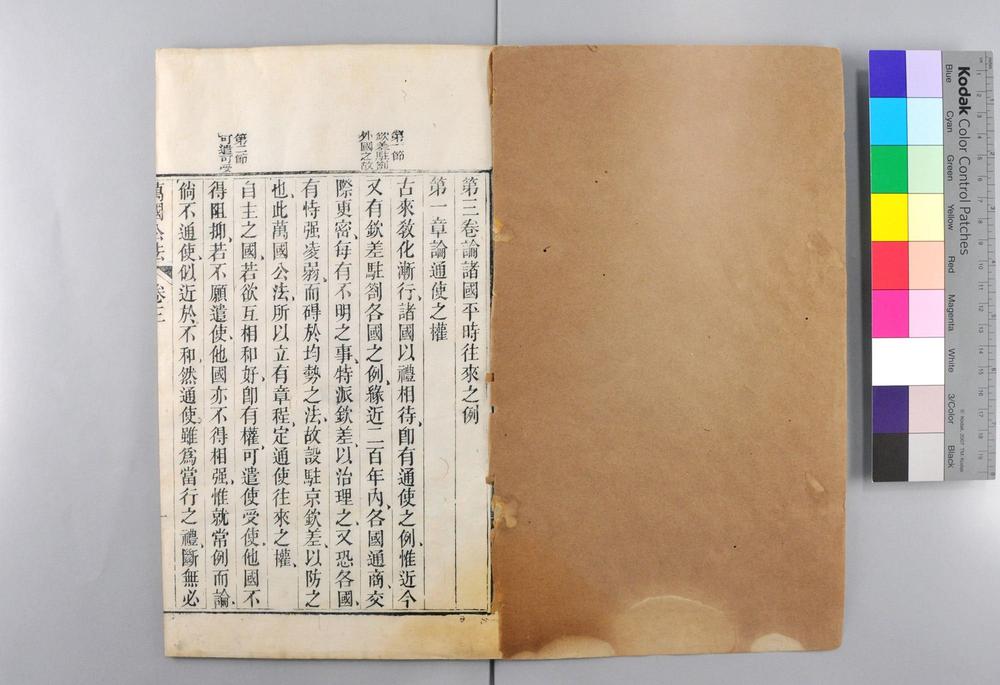 第三卷論諸國平時往來之例
第一章論通使之權
第一節
欽差駐劄
外國之故
古來敎化漸行、諸國以禮相待、卽有通使之例、惟近今
又有欽差駐劄各國之例、緣近二百年內、各國通商、交
際更密、每有不明之事、特派欽差、以治理之、又恐各國
有恃强凌弱、而碍於均勢之法、故設駐京欽差、以防之
也、此萬國公法、所以立有章程、定通使往來之權、
第二節
可遣可受
自主之國、若欲互相和好、卽有權可遣使受使、他國不
得阻抑、若不願遣使、他國亦不得相强、惟就常例而論、
倘不通使、似近於不和、然通使雖爲當行之禮、斷無必
萬國公法 卷三
Kodak Color Control Patches
© Kodak, 2007 TM: Kodak
Blue
Cyan
Green
Yellow
Red
Magenta
White
3/Color
Black